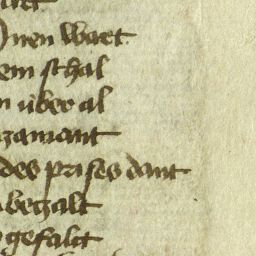 nen wart
em schal
n über al
zamant
des prises dant
bezalt
gefalt